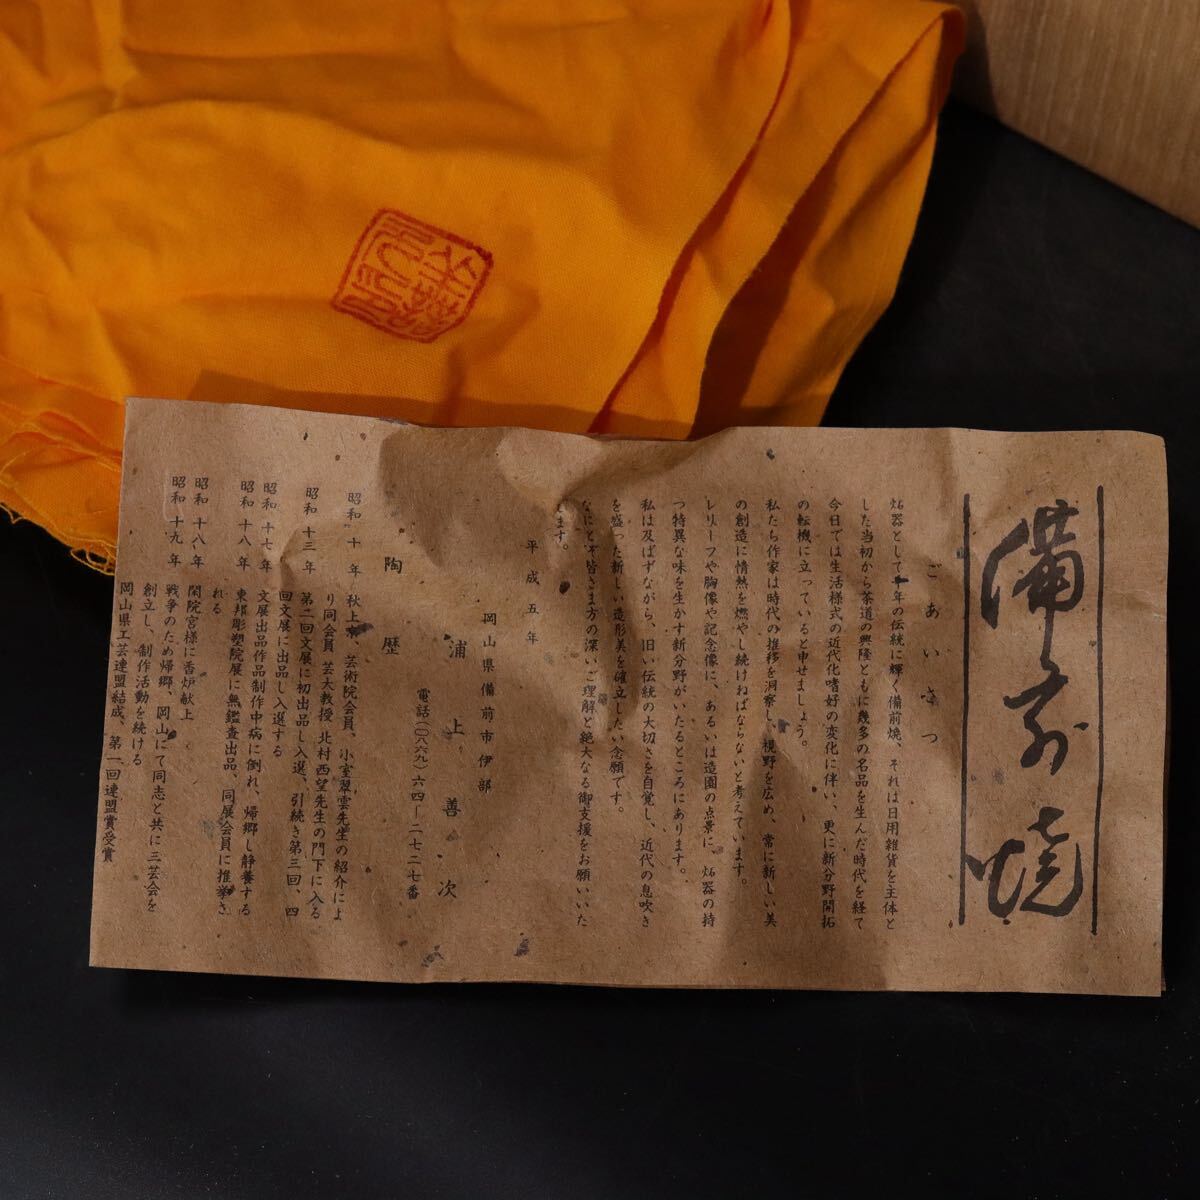 備前焼
ごあいさつ
炻器として千年の伝統に輝く備前焼、それは日用雑貨を主体と
した当初から茶道の興隆とともに幾多の名品を生んだ時代を経て
今日では生活様式の近代化嗜好の変化に伴い、更に新分野開拓
の転機に立っていると申せましょう。
私たち作家は時代の推移を洞察し、視野を広め、常に新しい美
の創造に情熱を燃やし続けねばならないと考えています。
レリーフや胸像や記念像に、あるいは造園の点景に、炻器の持
つ特異な味を生かす新分野がいたるところにあります。
私は及ばずながら、旧い伝統の大切さを自覚し、近代の息吹き
を盛った新しい造形美を確立したい念願です。
なにとぞ皆さま方の深いご理解と絶大なる御支援をお願いいた
ます。
平成五年
岡山県備前市伊部
浦上善次
電話(〇八六九)六四―二七二七番
陶歴
昭和十年 秋上京、芸術院会員、小室翠雲先生の紹介によ
り同会員 芸大教授 北村西望先生の門下に入る
昭和十三年 第二回文展に初出品し入選、引続き第三回、四
回文展に出品し入選する
昭和十七年 文展出品作品制作中病に倒れ、帰郷し静養する
昭和十八年 東邦彫塑院展に無鑑査出品、同展会員に推挙さ
れる
昭和十八年 閑院宮様に香炉献上
昭和十九年 戦争のため帰郷、岡山にて同志と共に三芸会を
創立し、制作活動を続ける
岡山県工芸連盟結成、第一回連盟賞受賞